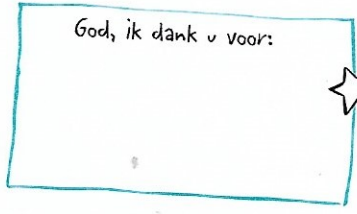 God, ik dank u voor: